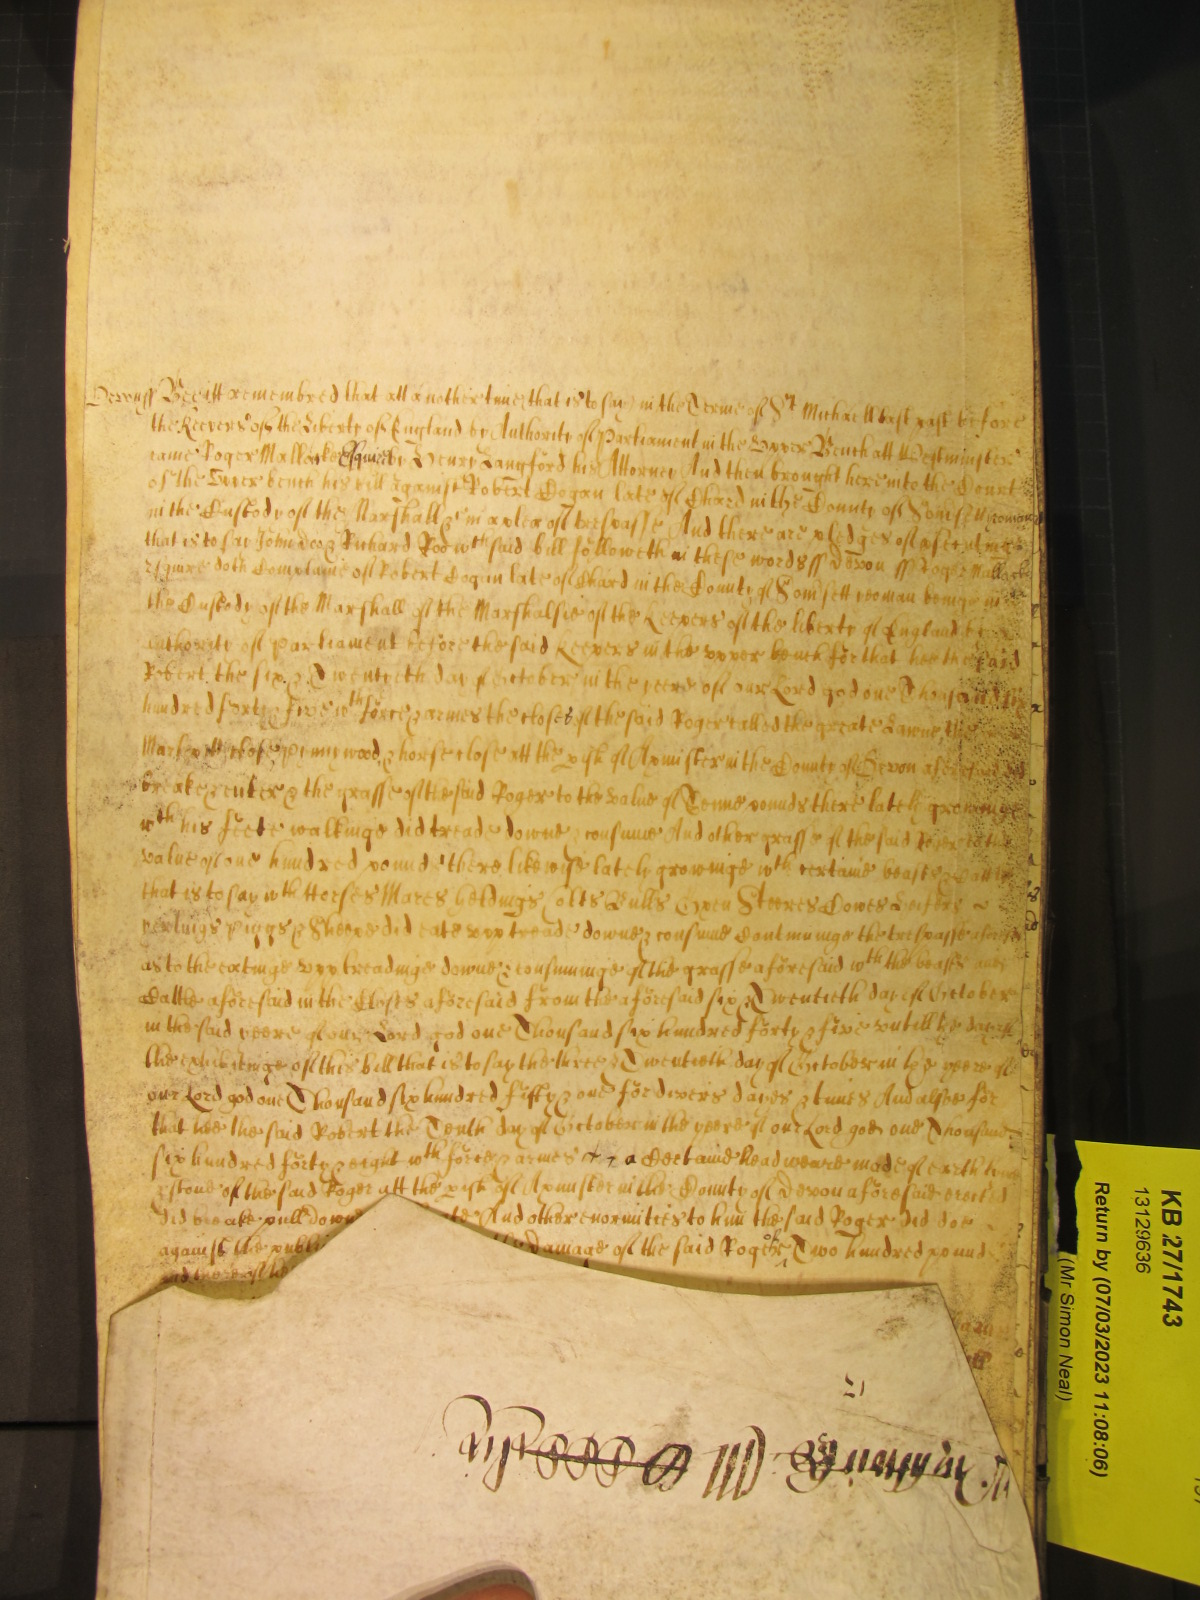 Devon ss Bee itt remembred that att another time that is to say in the Terme of St Michaell last past before
the Keepers of the Liberty of England by Authority of Parliament in the Upper Bench att Westminster
came Roger Mallocke Esquire by Henry Langford his Attorney And then brought here into the Court
of the Upper bench his bill against Robert Cogan late of Chard in the County of Somsett yeoman
in the Custody of the Marshall &c in a plea of trespasse And there are pledges of
that is to say John Doo & Richard Roo wch said bill followeth in these words ss Devon ss Roger Mallocke
Esquire doth Complaine of Robert Cogan late of Chard in the County of Somsett yeoman beinge in
the Custody of the Marshall of the Marshalsie of the Keepers of the liberty of England by
authority of parliament before the said Keepers in the upper bench for that hee the said
Robert the six & Twentieth day of october in the yeere of our Lord god one Thousand six
hundred forty & five wth force & armes the closes of the said Roger called the greate Lawne, the
close, Pinnywood & horse close att the pish of Axmister in the County of Devon aforesaid did
breake & enter & the grasse of the said Roger to the value of Tenne pounds there lately groweinge
wth his feete walkinge did treade downe & consume And other grasse of the said Roger to the
value of one hundred pounds there likewise lately growinge wth certaine beasts & Cattle
that is to say wth Horses Mares geldings Colts Bulls Oxen Steeres Cowes Heifers
yerlings Piggs & Sheepe did eate upp treade downe & consume Continuinge the trespasse aforesaid
as to the eatinge upp treadinge downe & consuminge of the grasse aforesaid wth the beasts and
Cattle aforesaid in the Closes aforesaid from the aforesaid six & Twentieth day of October
in the said yeere of our Lord god one Thousand six hundred forty & five untill the day of
the exhibitinge of this bill that is to say the three & Twentieth day of October in the yeere of
our Lord god one Thousand six hundred fifty & one for divers dayes & times And alsoe for
that hee the said Robert the Tenth day of October in the yeere of our Lord god one Thousand
six hundred forty & eight wth force & armes &c a Certaine head weare made of earth
& stone of the said Roger att the pish of Axmister in the County of Devon aforesaid erected
did breake pull downe And other enormities to him the said Roger did doe
against the publi damage of the said Roger of Two hundred pounds
and thereof he
KB 27/1743
13129636
Return by (07/03/2023 11:08:06)
(Mr Simon Neal)